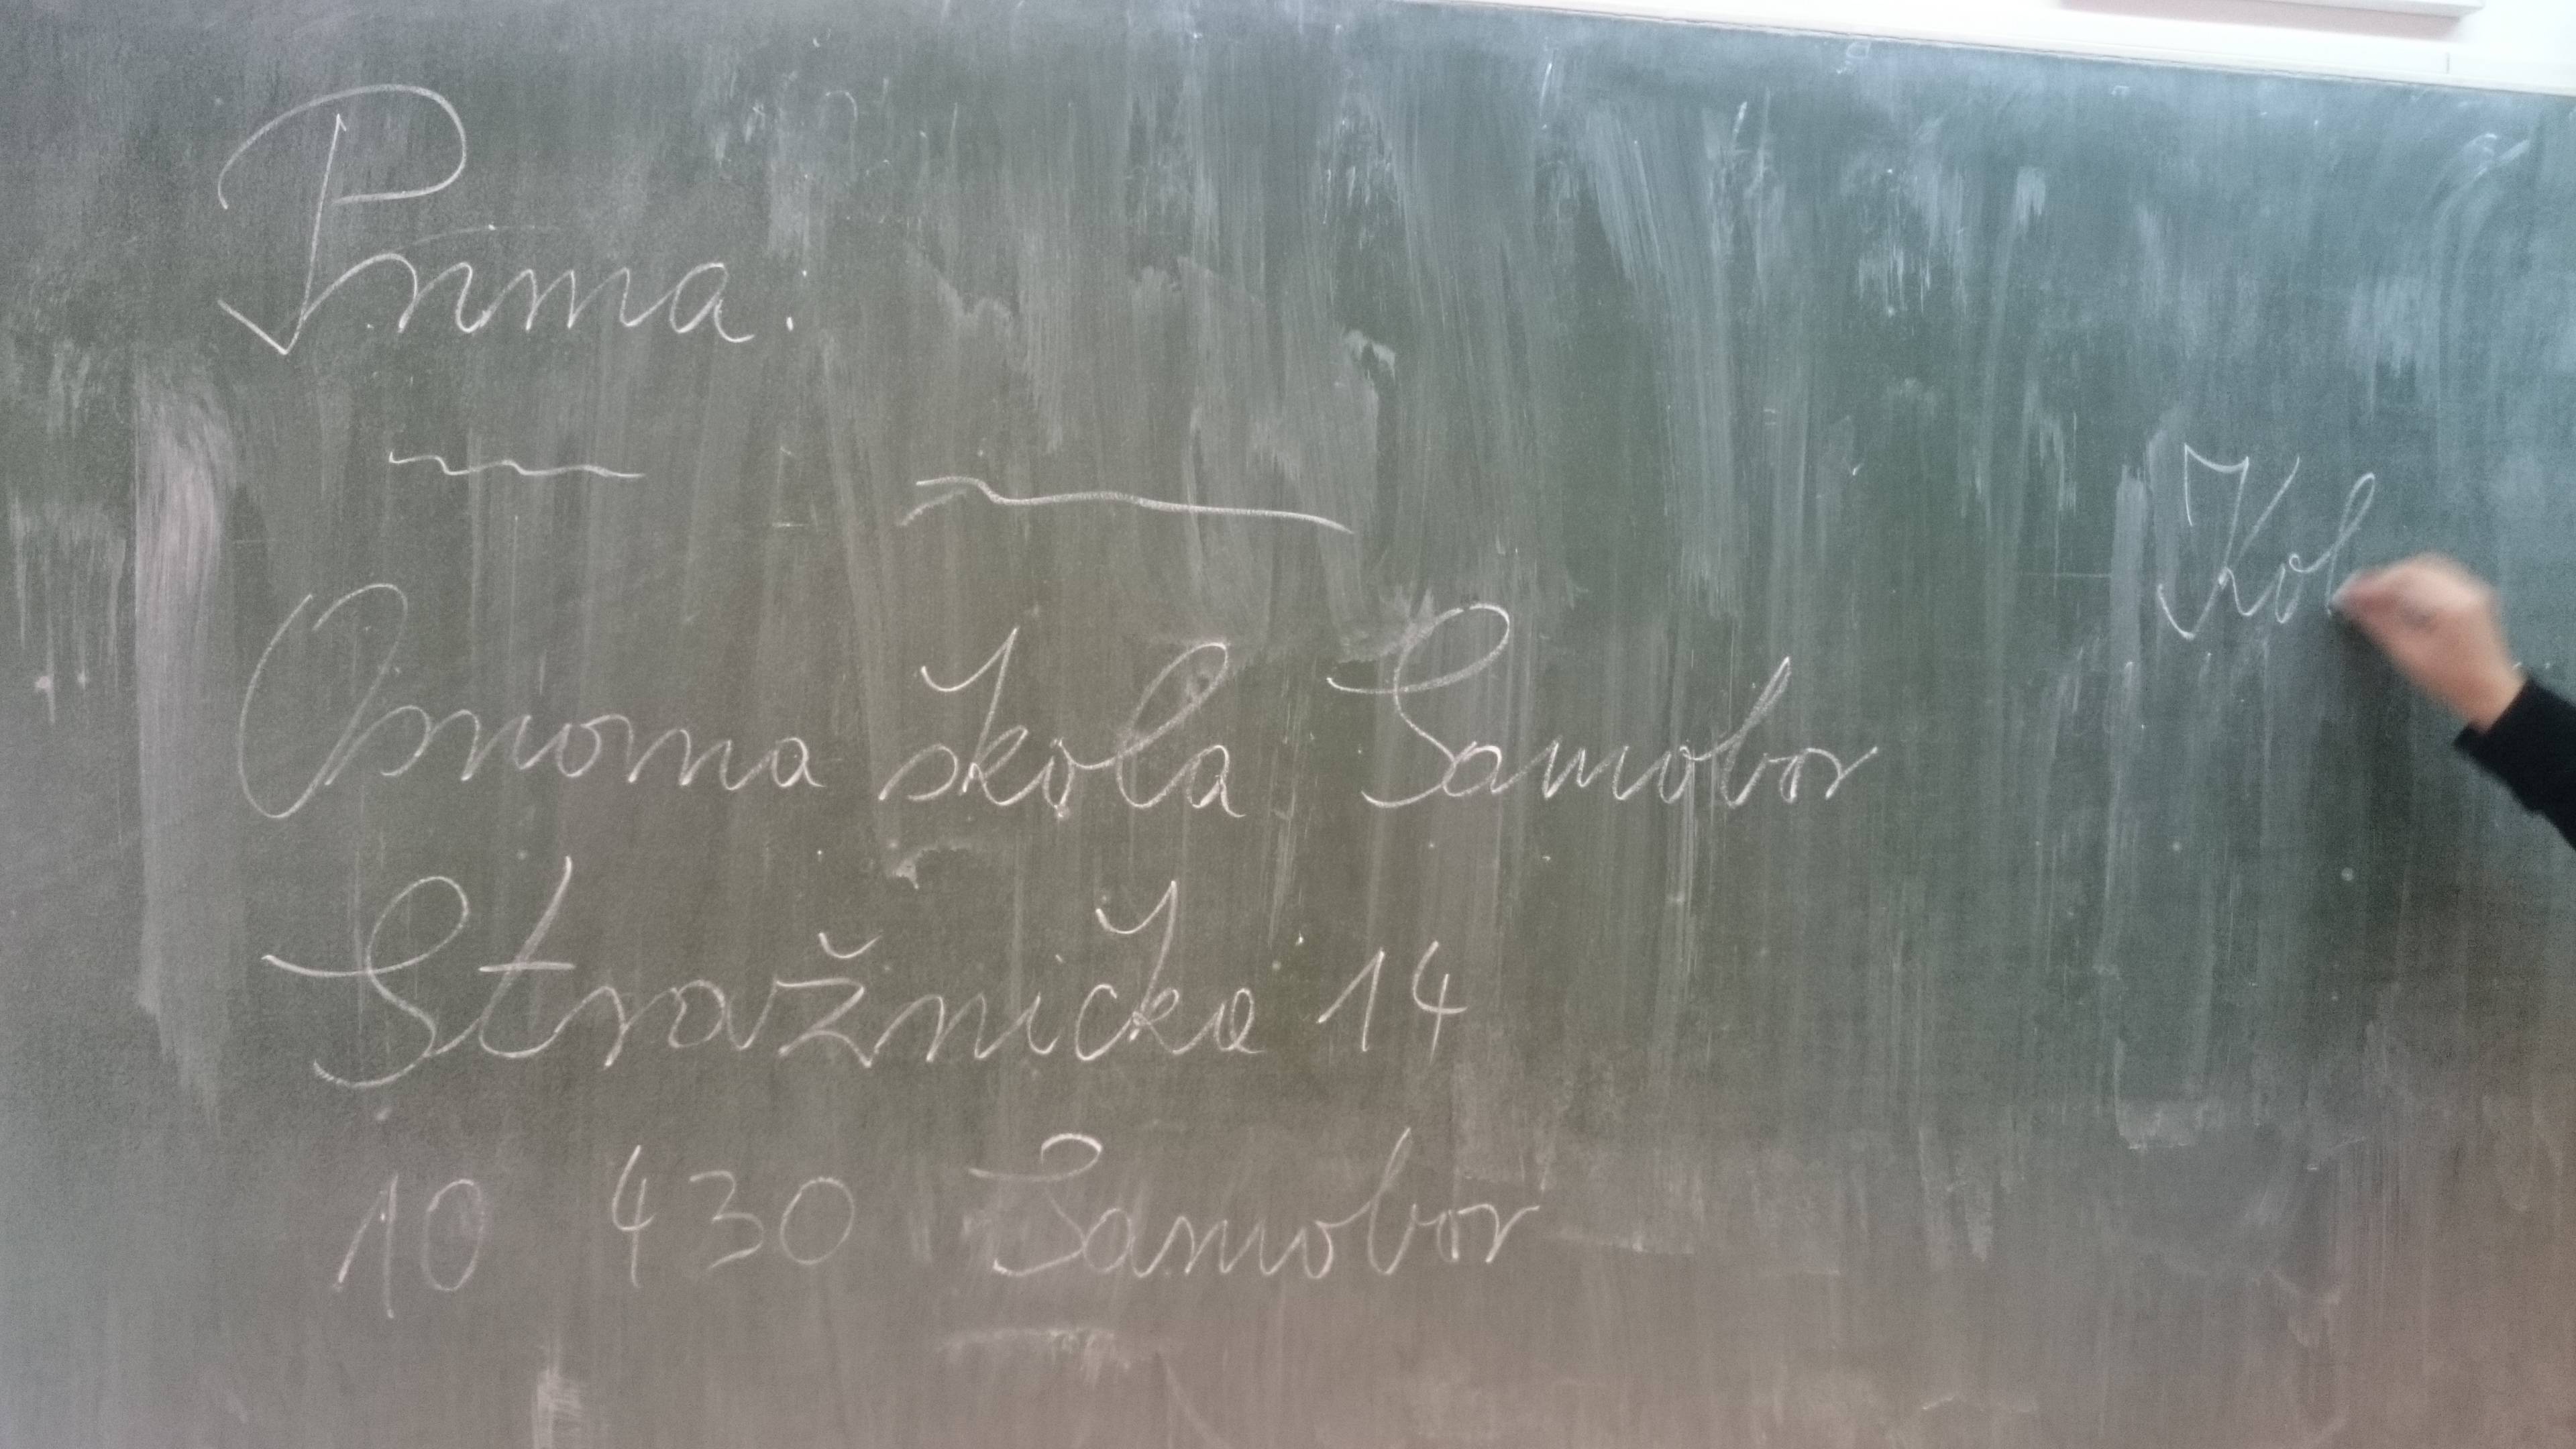 Prima:
Osnovna škola Samobor
Kol
Stražnička 14
10 430 Samobor